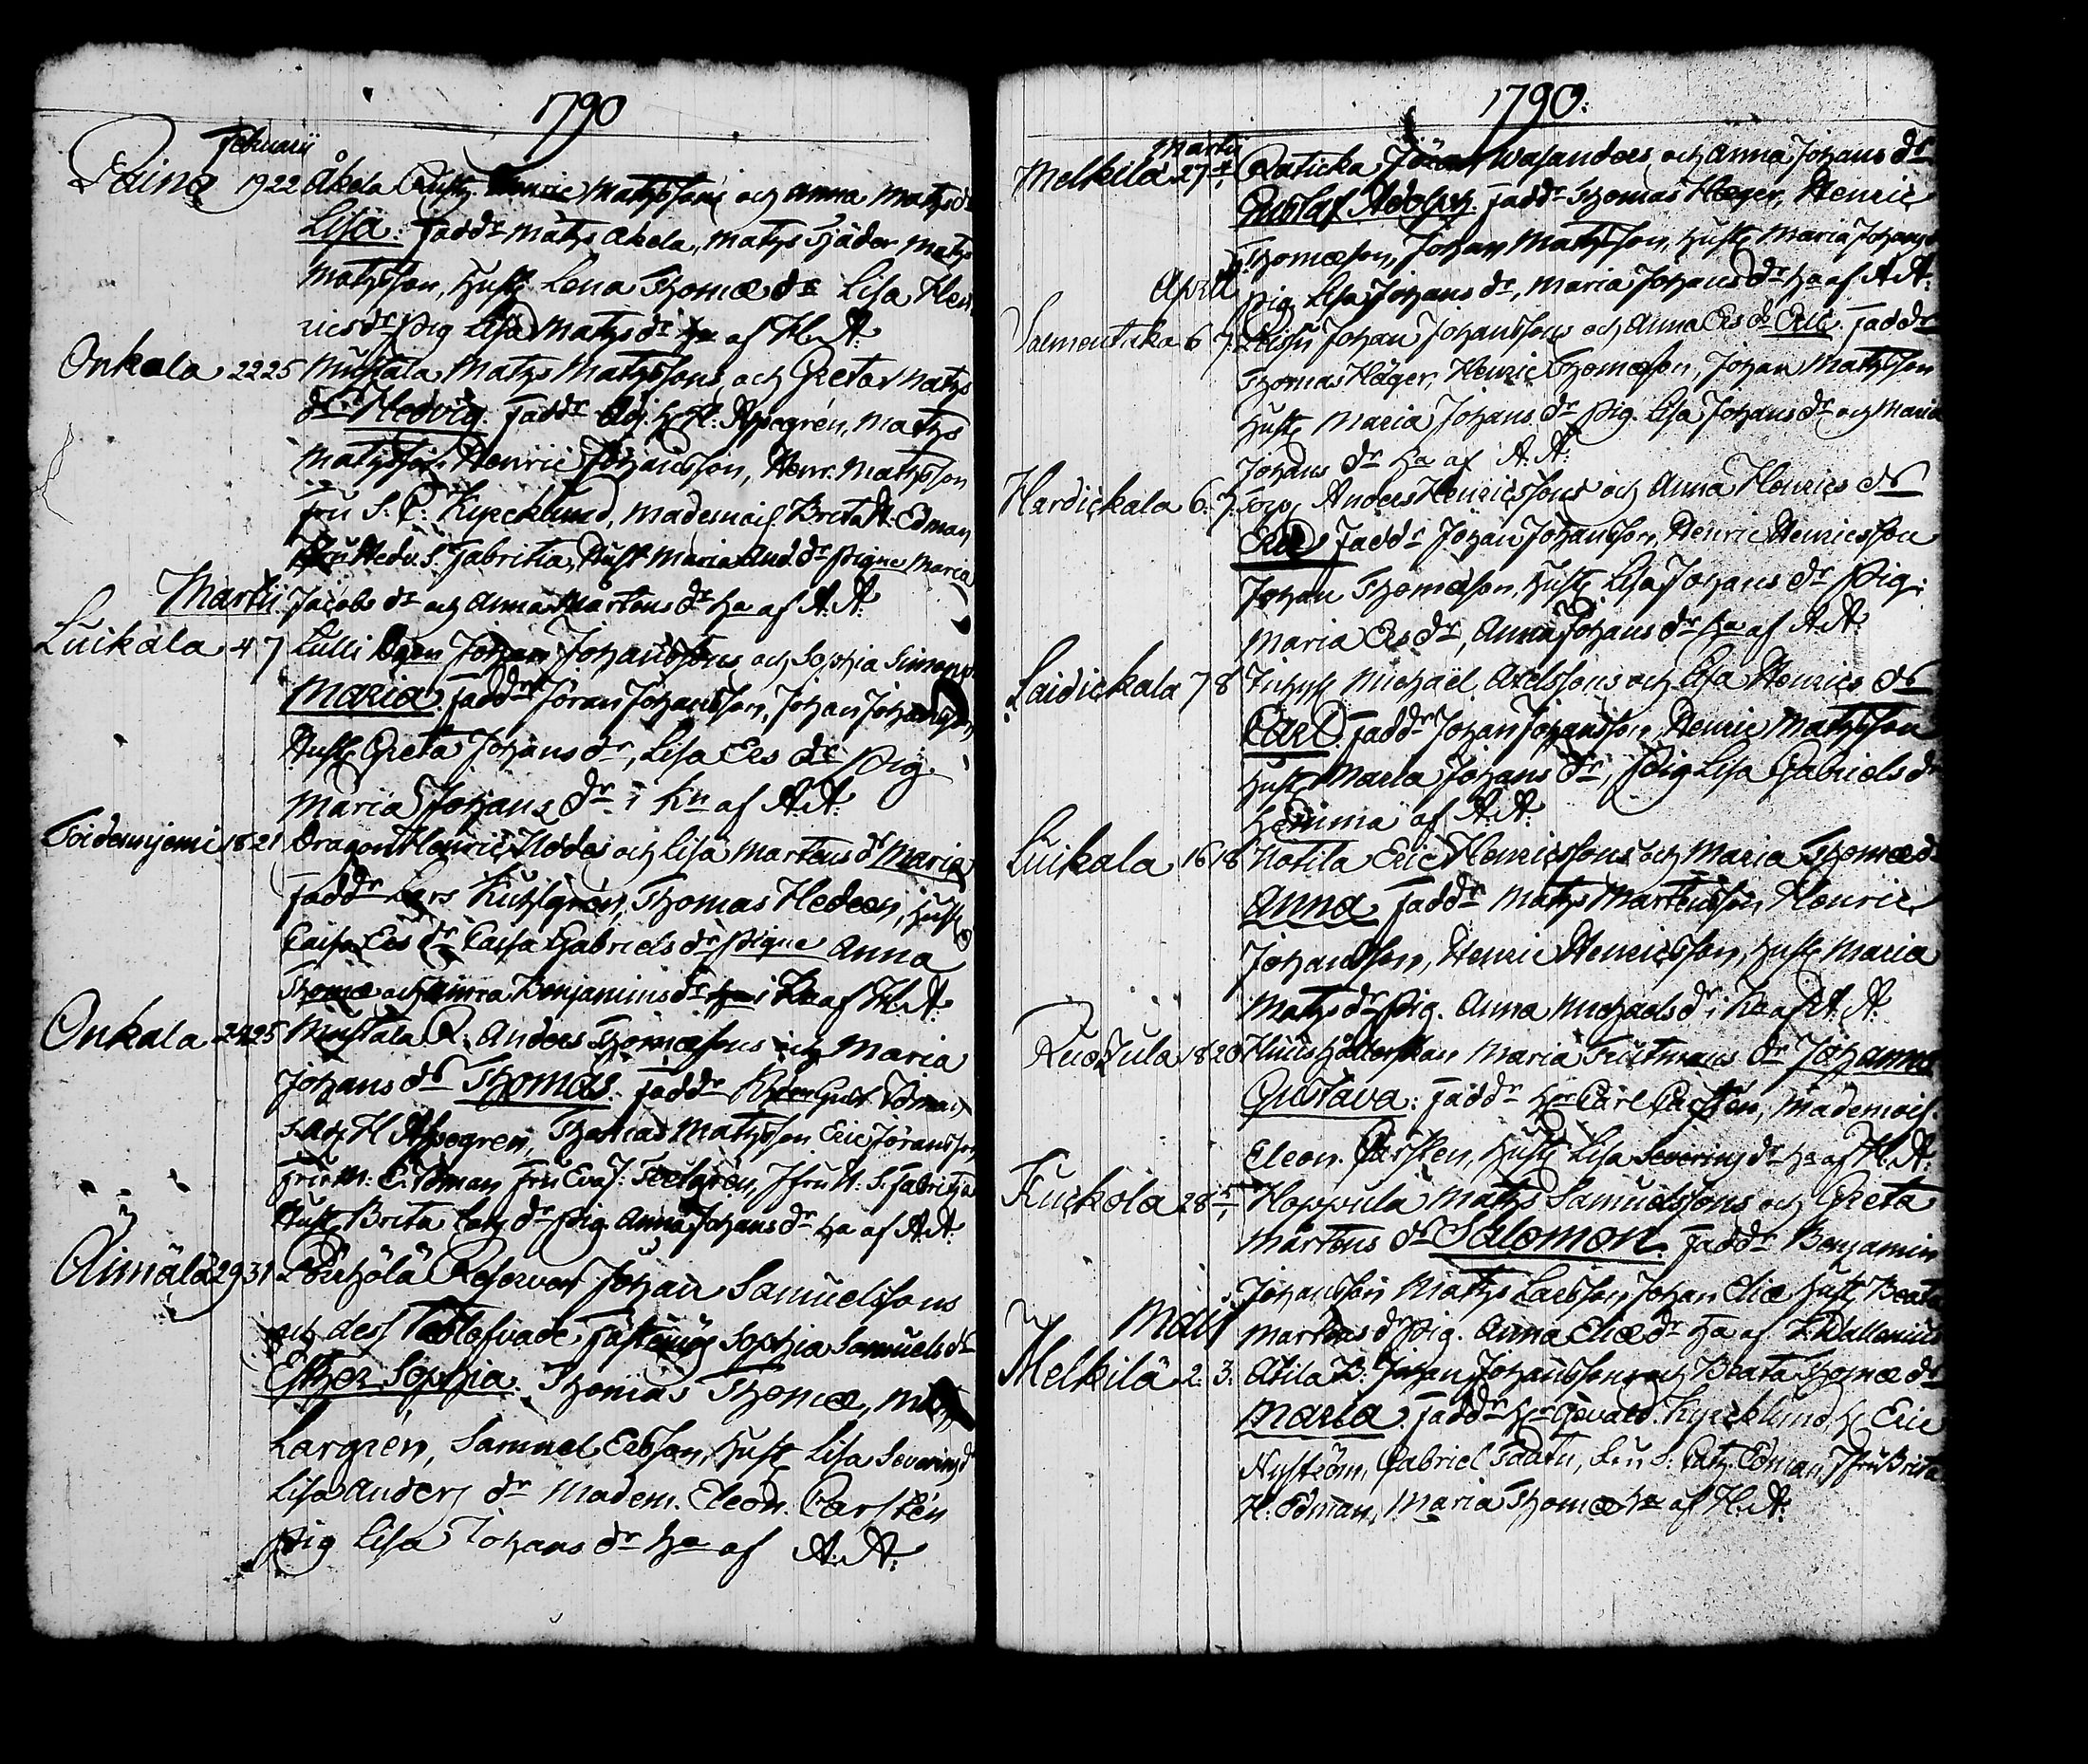 1790
Februarii
Paino 19 22 Åkela Rusth. Henric Matzssons och Anna Matzdr
Lisa. Faddr Matz Akela, Matz Tjäder Matz
Matzsson, Hust. Lena Thomæ dr Lisa Hen
ricsdr Pig Lisa Matzdr af H. A:
Onkala 22 25 Mustala Matz Matzssons och Greta Matz
dr Hedvig. Faddr Adj. H. H: Aspegrén, Matz
Matzsson Henric Johansson, Henr. Matzsson
Fru S. C: Kyrcklund, Mademois. Brita H. Edman
Hedv. S. Fabritia, Hust Maria And. dr Pigne Maria
Martii Jacobs dr och Anna Mårtens dr ha af A. A:
Luikala 4 7 Lulli Johan Johanssons och Sophia Simonp.
Maria. Faddr Jöran Johansson, Johan Johansson,
Hust. Greta Johans dr, Lisa Ers dr Pig.
Maria Johans dr i Kn af A. A:
Toidennjemi 18 21 Dragon Henric Hedes och Lisa Martens dr Maria
Faddr Lars Kuhlgrén, Thomas Hedeen, Hust
Caisa Ers dr Caisa Gabriels dr Pigne Anna
Thomæ och Anna Benjamins dr i Ka af H. A:
Onkala 24 25 Mustala R. Anders Thomæsons och Maria
Johans dr Thomas. Faddr Gust. Edman
H Aspegren, Thomas Matzsson Eric Jöransson
Fru M: C. Edman Fru Eva J: Feelgren, Jfru H: S. Fabritia
Hust. Brita Latz dr Pig Anna Johans dr ha af A. A:
Aimälä 29 31 Pouhölä Reserver Johan Samuelssons
och dess Trolofvade Fästemö Sophia Samuels dr
Esther Sophia. Thomas Thomæ,
Largrén, Samuel Ersson, Hust Lisa Severinsd
Lisa Anders dr Madem. Eleon. Carstén
Pig Lisa Johans dr ha af A. A:
1790:
Martii
Melkila 27 Raticka Jöran Wasanders och Anna Johans dr
Gustaf Adolph. Faddr Thomas Häger, Henric
Thomæson, Johan Matzsson, Hust. Maria Johans
April Pig Lisa Johans dr, Maria Johans dr ha af A A:
Salmentaka 6 7 Johan Johanssons och Anna Ers dr Eric. Faddr
Thomas Häger, Henric Thomæson, Johan Matzsson
Hust. Maria Johans dr Pig. Lisa Johans dr och Maria
Johans dr ha af A. A:
Hardickala 6. 7. Torp. Anders Henricssons och Anna Henrics dr
Eric Faddr Johan Johansson, Henric Henricsson
Johan Thomæson, Hust. Lisa Johans dr Pig.
Maria Ers dr, Anna Johans dr ha af A. A:
Laidickala 7 8 Inhys. Michaël Axelssons och Lisa Henrics dr
Carl. Faddr Johan Johansson, Henric Matzsson
Hust Maria Johans dr, Pig Lisa Gabriels dr
hemma af A. A:
Luikala 16 18 Notila Eric Henricssons och Maria Thomæ d
Anna Faddr Matz Martensson, Henric
Johansson, Henric Henricsson, Hust. Maria
Matz dr Pig. Anna Michaels dr i Ka af A. A:
Ruokula 18 20 Hushållerskan Maria Trutmans dr Johanna
Gustava: Faddr Hr Carl Carsten, Mademois.
Eleon. Carsten, Hust. Lisa Severins dr ha af H. A:
Kuckola 28 Hoppula Matz Samuelssons och Greta
Mårtens dr Salomon. Faddr Benjamin
Johansson Matz Larsson Johan Eliæ Hust Beata
Maii Martens dr Pig. Anna Eliæ dr ha af Z. Wallenius
Melkilä 2. 3. Atila B. Johan Johanssons och Beata Thomæ dr
Maria. Faddr Hr Gevald. Kyrcklund, H. Eric
Nyström, Gabriel Taatu, S. Cath. Edman, Jfru Brita
H. Edman, Maria Thomæ ha af H. A: